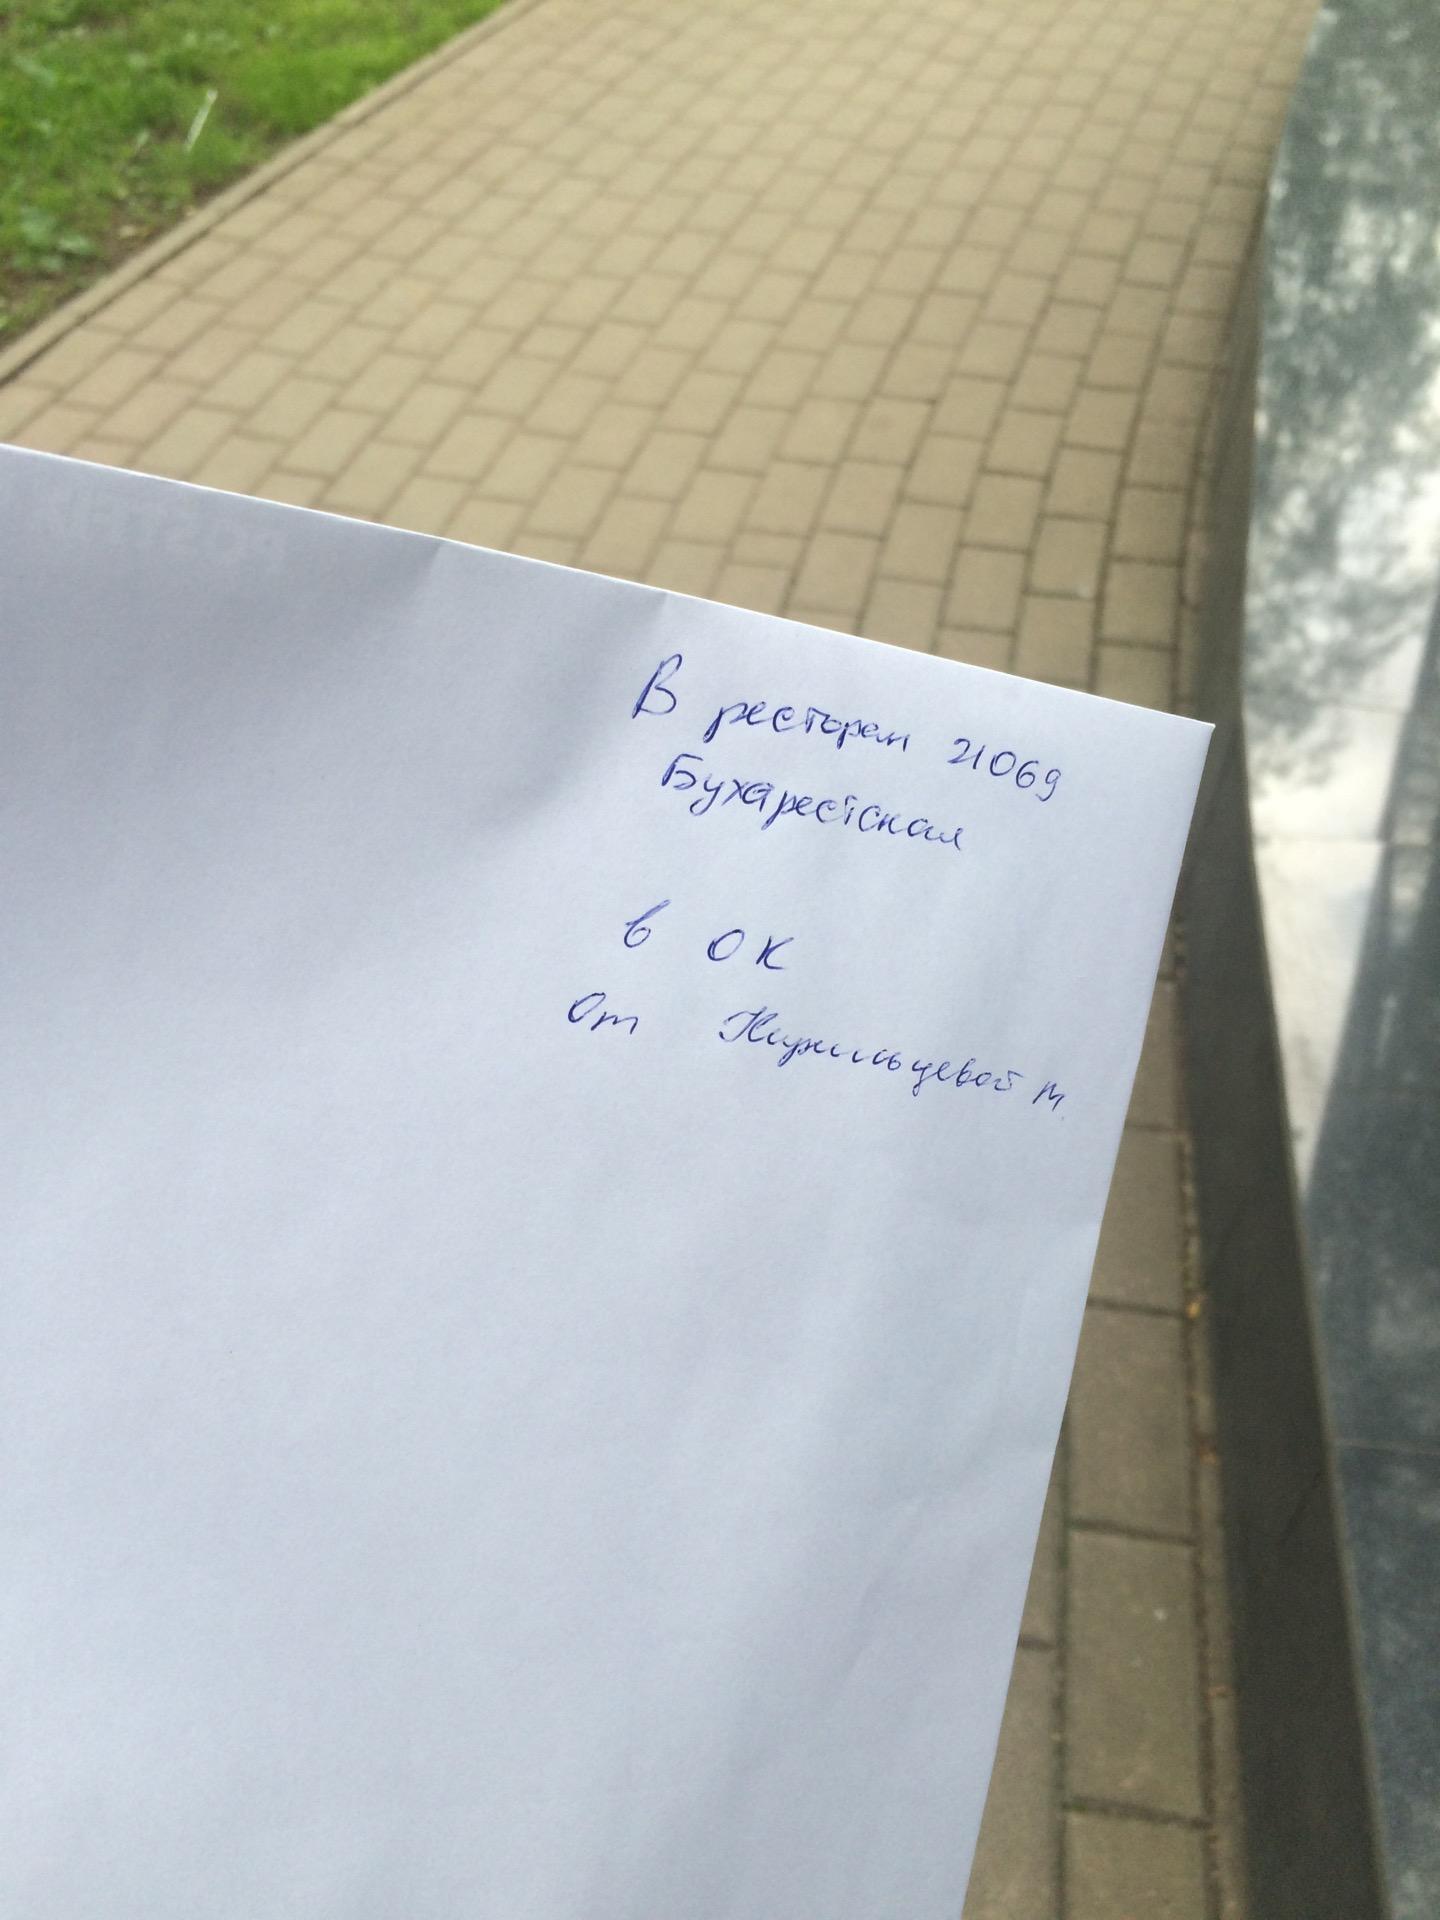 В ресторан 21069
Бухарестская
в ОК
От М.